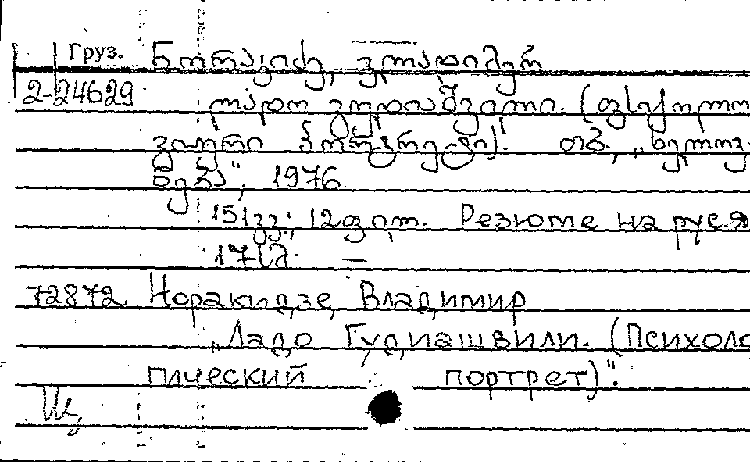 Груз. ნორაკიძე, ვლადიმერ
2-24629
ლადო გუდიაშვილი. (ფსიქოლო
გიური პორტრეტი). თბ., „ხელოვ
ნება", 1976
151 გვ; 12 ფოტ. Резюме на рус.я
17სმ. —
72872 Норакидзе, Владимир
„Ладо Гудиашвили. (Психоло
гический портрет)".